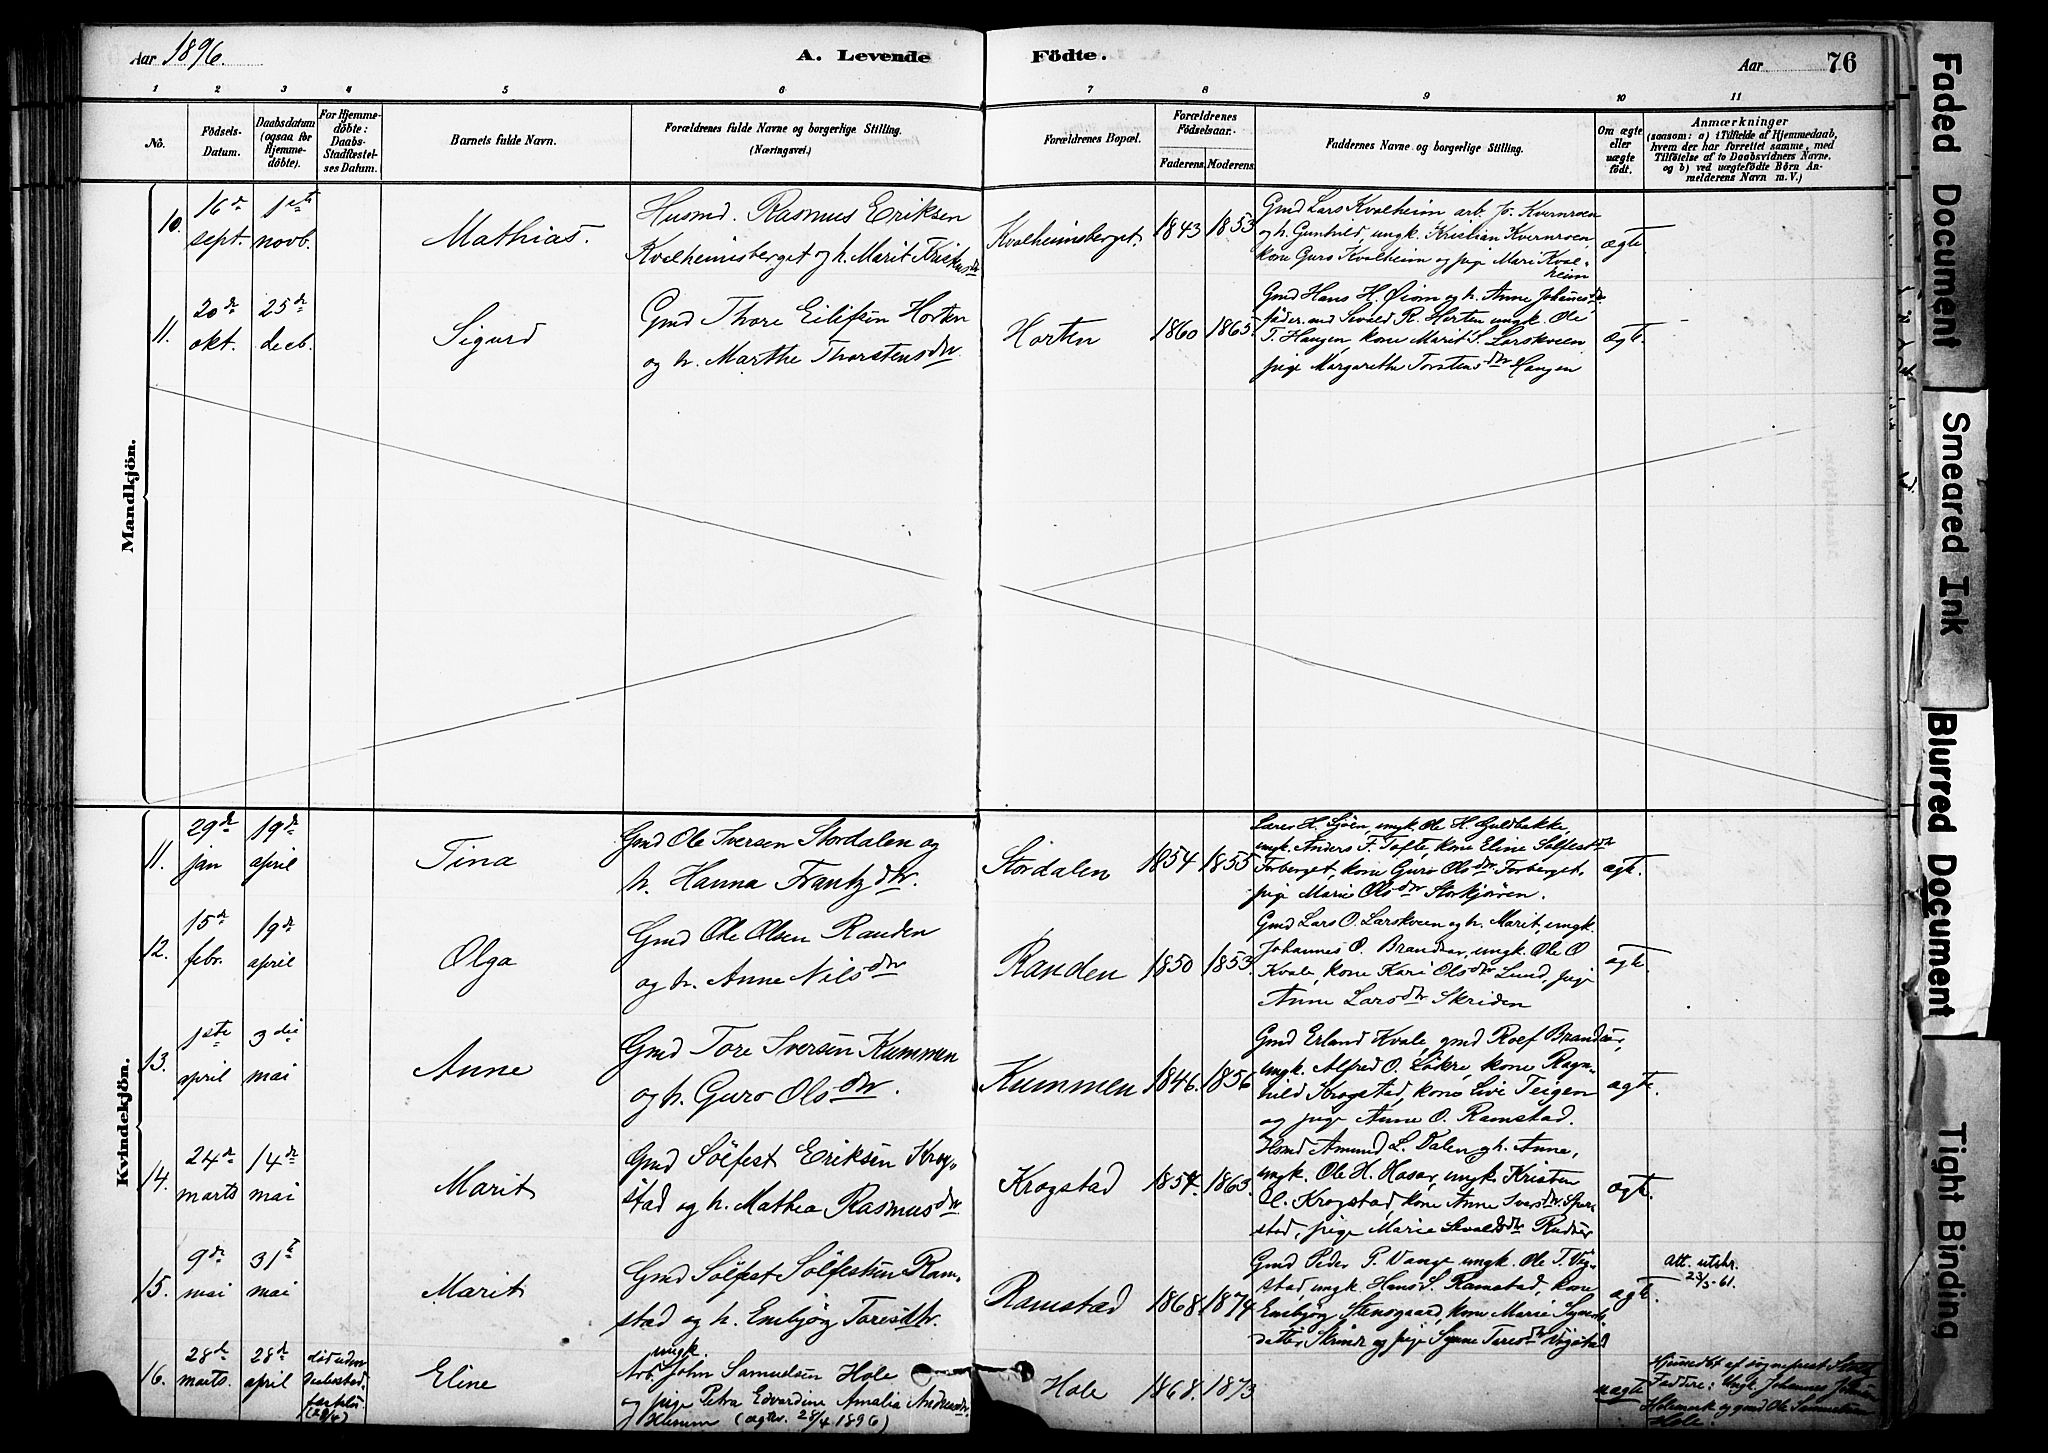 Aar 1896.
A. Levende
Födte.
Aar
76
1 2 3 4 5 6 7 8 9 10 11
No.
Födsels-
Datum.
Daabsdatum
(ogsaa for
Hjemme-
döbte).
For Hjemme-
döbte:
Daabs-
Stadfæstel-
ses Datum.
Barnets fulde Navn.
Forældrenes fulde Navne og borgerlige Stilling.
(Næringsvei.)
Forældrenes Bopæl.
Forældrenes
Födselsaar.
Faderens. Moderens.
Faddernes Navne og borgerlige Stilling.
Om ægte
eller
uægte
födt.
Anmærkninger
(saasom: a) i Tilfælde af Hjemmedaab,
hvem der har forrettet samme, med
Tilföielse af to Daabsvidners Navne,
og b) ved uægtefödte Börn An-
melderens Navn m. V.)
Mandkjön.
10.
16de
sept.
1ste
novb.
Mathias.
Husmd. Rasmus Eriksen
Kvalheimsberget og h. Marit
Kvalheimsberget.
1843 1853
Gmd Lars Kvalheim arb. Jo. Kvernroen
og h. Gunhild, ungk. Kristian Kvernroen,
kone Guro Kvalheim og pige Mari Kval-
heim
ægte
11.
20de
okt.
25de
decb.
Sigurd
Gmd Thore Eilifsen Horten
og h. Marthe Thorstensdtr.
Horten
1860 1865.
Gmd Hans H. Øien og h. Anne Johannesdtr
Sevald R. Horten ungk. Ole
T. Haugen, kone Marit S. Larskveen
pige Margarethe Torstensdtr Haugen
ægt.
Kvindekjön.
11.
29de
jan
19de
april
Tina
Gmd Ole Iversen Stordalen og
h. Hanna Frantzdtr.
Stordalen
1854 1855
Lærer H. Sjöen, ungk. Ole H. Guldbakke,
ungk. Anders F. Tofte, kone Eline Sölfestdtr
Forberget, kone Guro Olsdtr Forberget,
pige Marie Olsdtr Storkjören.
ægt.
12.
15de
febr.
19de
april
Olga
Gmd Ole Olsen Randen
og h. Anne Nilsdtr
Randen
1850 1853.
Gmd Lars O. Larskveen og h. Marit, ungk.
Johannes O. Brandsar, ungk. Ole O
Kvale, kone Kari Olsdtr Lund, pige
Anne Larsdtr Skriden
ægt.
13.
1ste
april
3die
mai
Anne
Gmd Tore Iversen Kummen
og h. Guro Olsdtr.
Kummen
1846. 1856
Gmd Erland Kvale, gmd Roef
ungk. Alfred O. Løkre, kone Ragn-
hild Krogstad, kone Livi Teigen
og pige Anne O. Ramstad.
ægt.
14.
24de
marts
14de
mai
Marit
Gmd Sölfest Eriksen Krog-
stad og h. Mathea Rasmusdtr.
Krogstad
1854. 1863.
Hsmd Amund L. Dalen og h. Anne,
ungk. Ole H. Hasar, ungk. Kristen
Krogstad, kone Anne Iversdtr
stad, pige Marie Sevaldsdtr
ægt.
15.
9de
mai
31te
mai
Marit
Gmd Sölfest Sölfestsen Ram-
stad og h. Embjörg Toresdtr.
Ramstad
1868. 1874
Gmd Peder P. Vange ungk. Ole T. Vig-
stad, ungk. Hans S. Ramstad, kone
Embjörg Stensgaard, kone Marie
datter og pige Synne Toresdtr Vigstad
ægt.
Att. utskr.
23/5-61.
16.
28de
marts.
28de
april
död uden
(28/4)
Eline
ungk.
Arb. John Samuelsen Hole
og pige Petra Edvardine Amalia Andreasdtr
(ægtev. 28/4 1896)
Hole
1868. 1873
uægte
Hjemmedöbt af sognepræst
Faddere: Ungk. Johannes
og gmd Ole Samuelsen
Hole.
Faded Document
Smeared Ink
Blurred Document
Tight Binding